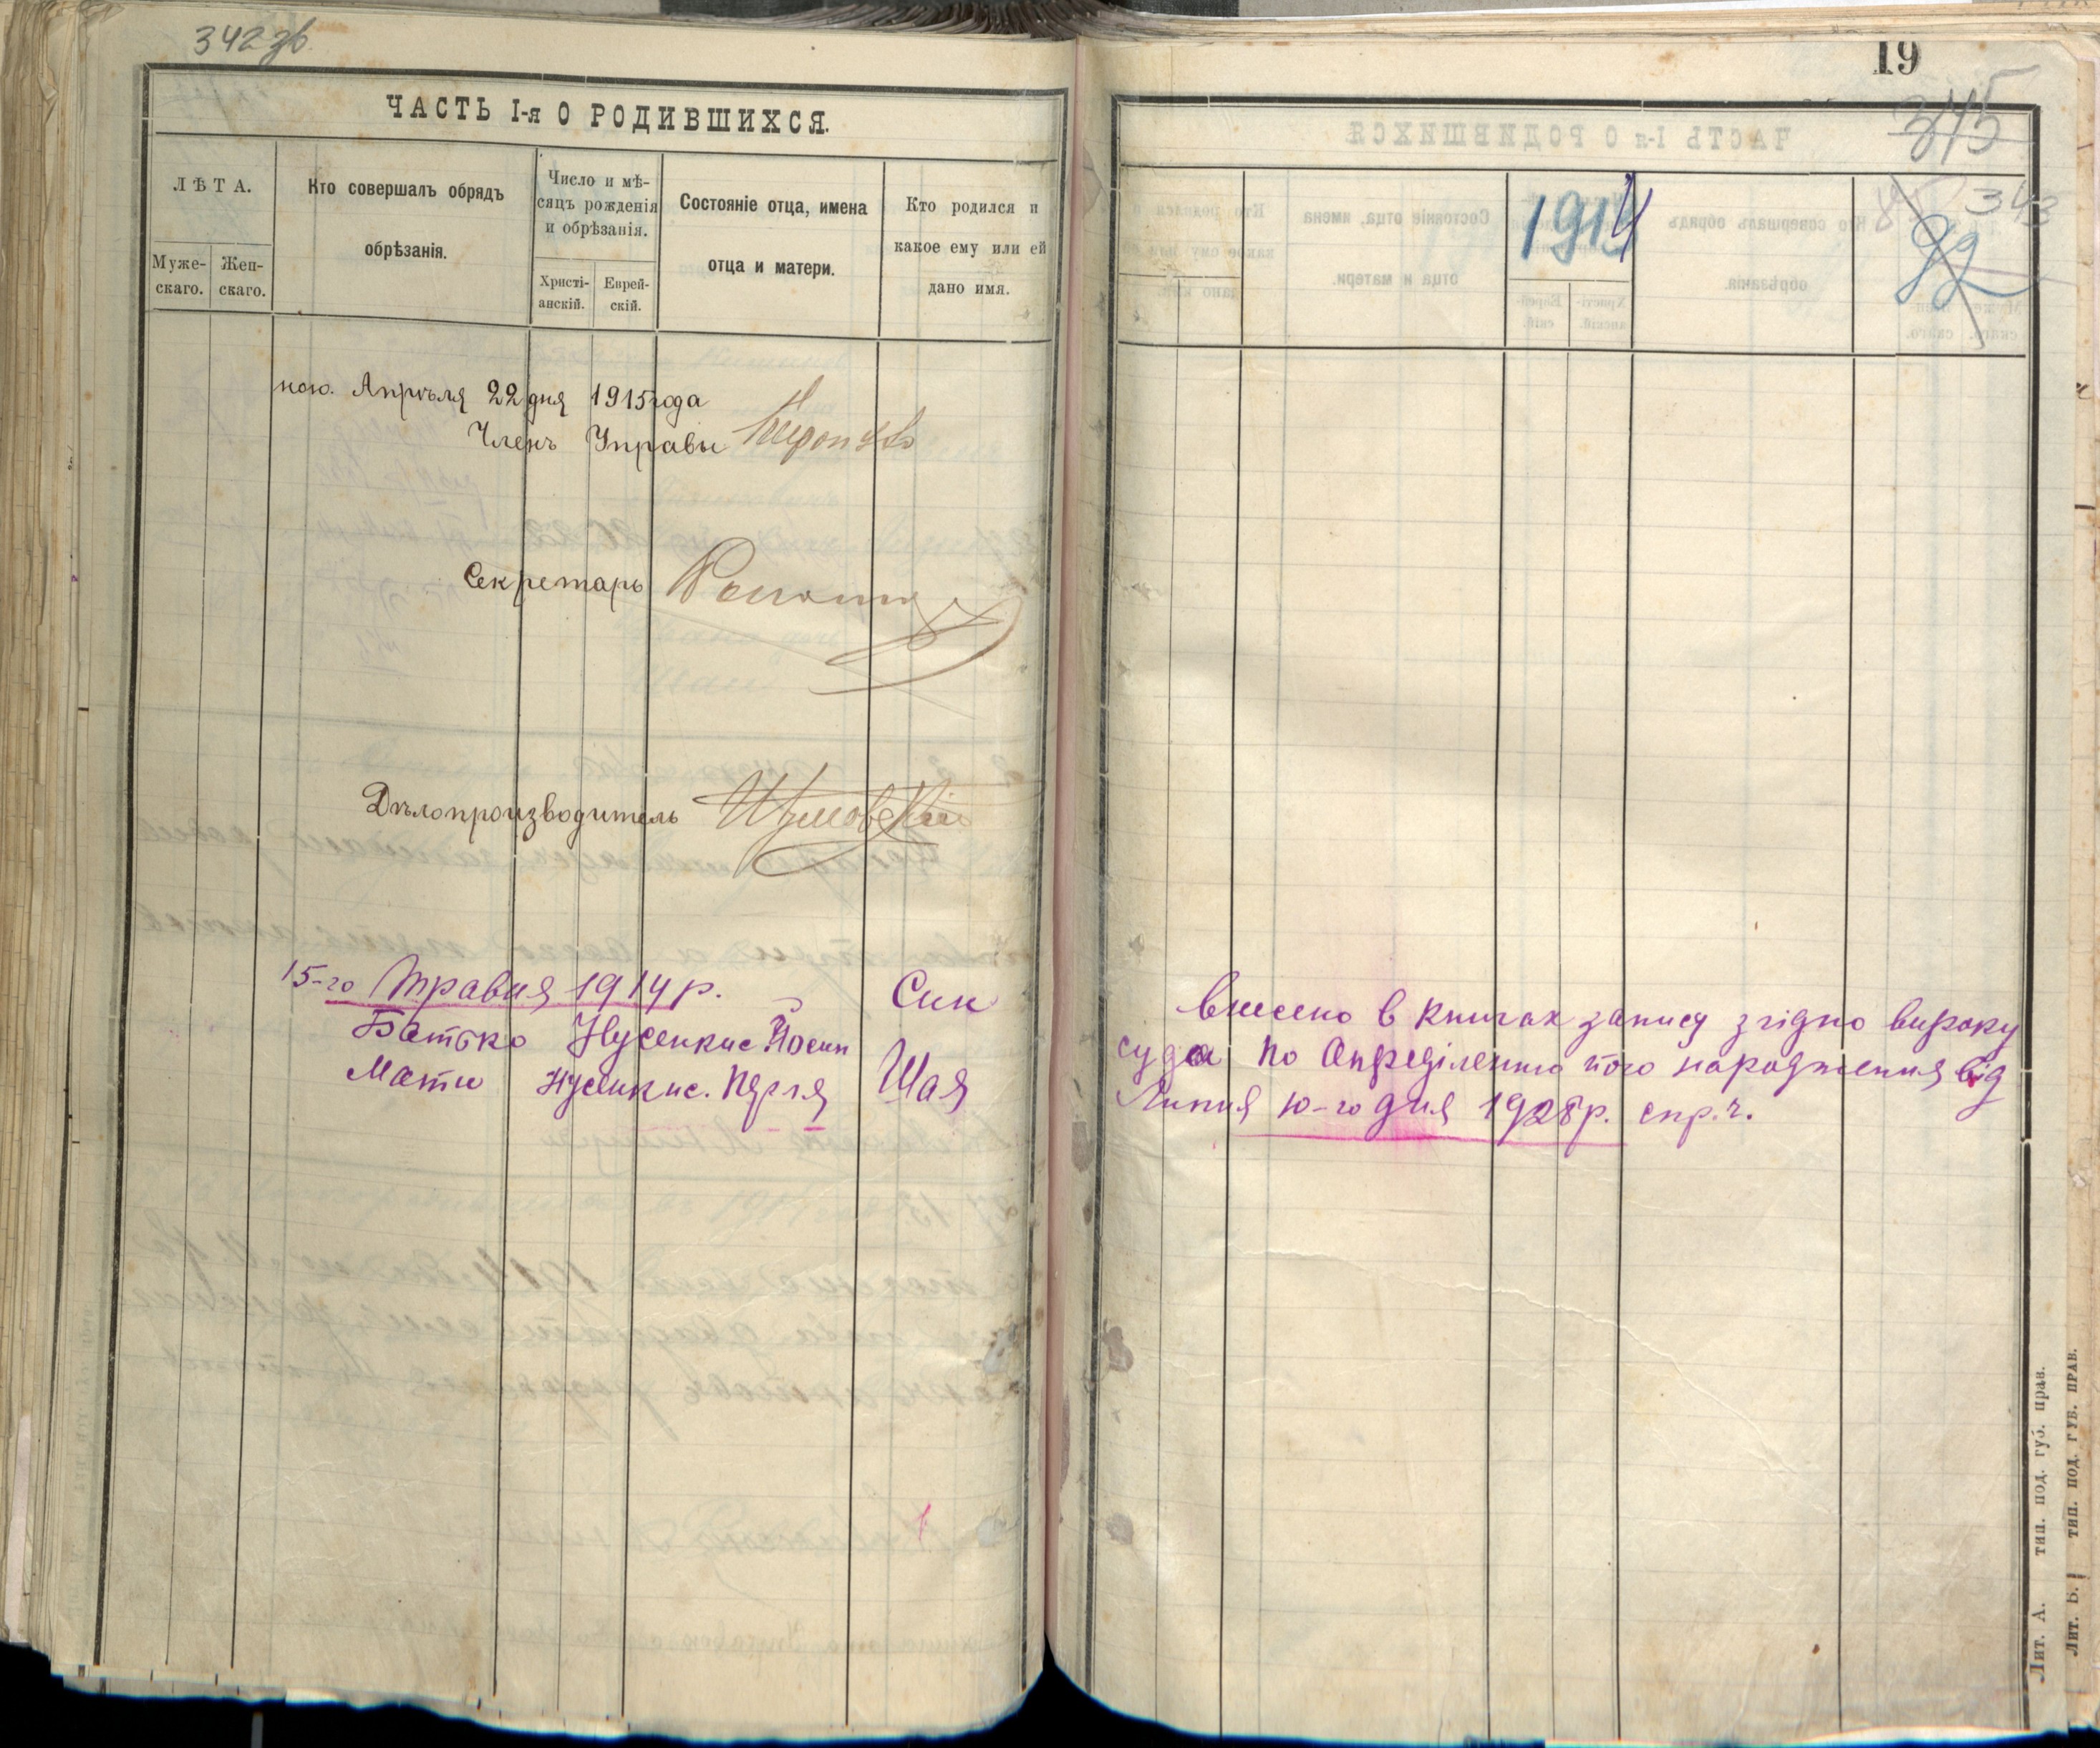 342 зв
ЧАСТЬ I-я О РОДИВШИХСЯ.
ЛѢТА.
Муже-
скаго.
Жен-
скаго.
Кто совершалъ обрядъ
обрѣзанія.
Число и мѣ-
сяцъ рожденія
и обрѣзанія.
Христі-
анскій.
Еврей-
скій.
Состояніе отца, имена
отца и матери.
Кто родился и
какое ему или ей
дано имя.
ною. Апрѣля 22 дня 1915 года
Членъ Управы
Секретарь
Дѣлопроизводитель
15-го Травня 1914 р. Син
Батько Нусенкис Йосип
Мати Нусенкис. Перля Шая
19
345
343
92
1914
Внесено в книгах запису згідно вироку
суда по Определенню його народження від
Липня 10-го дня 1928 р. спр. ч.
Лит. А. тип. под. губ. прав.
Лит. Б. тип. под. губ. прав.